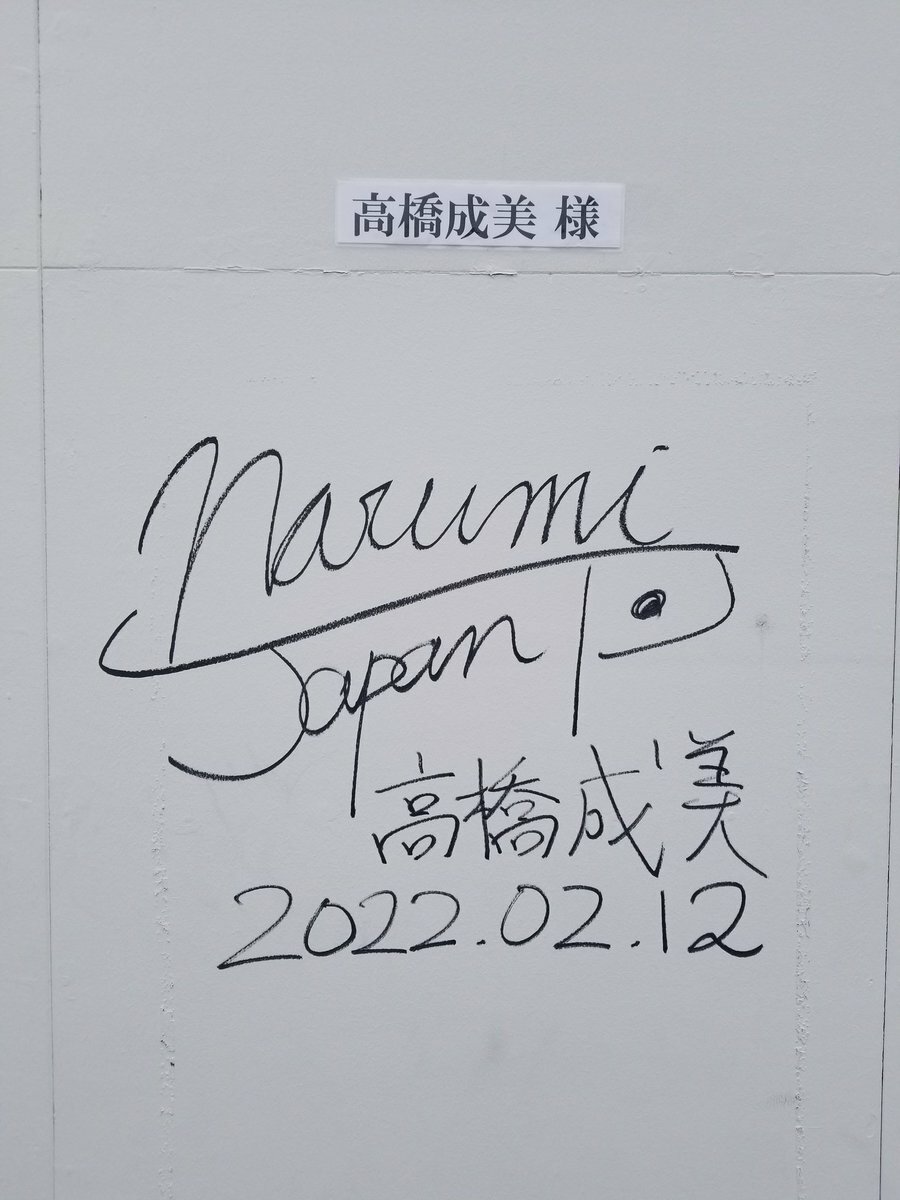 高橋成美 様
Narumi
Japan
高橋成美
2022.02.12